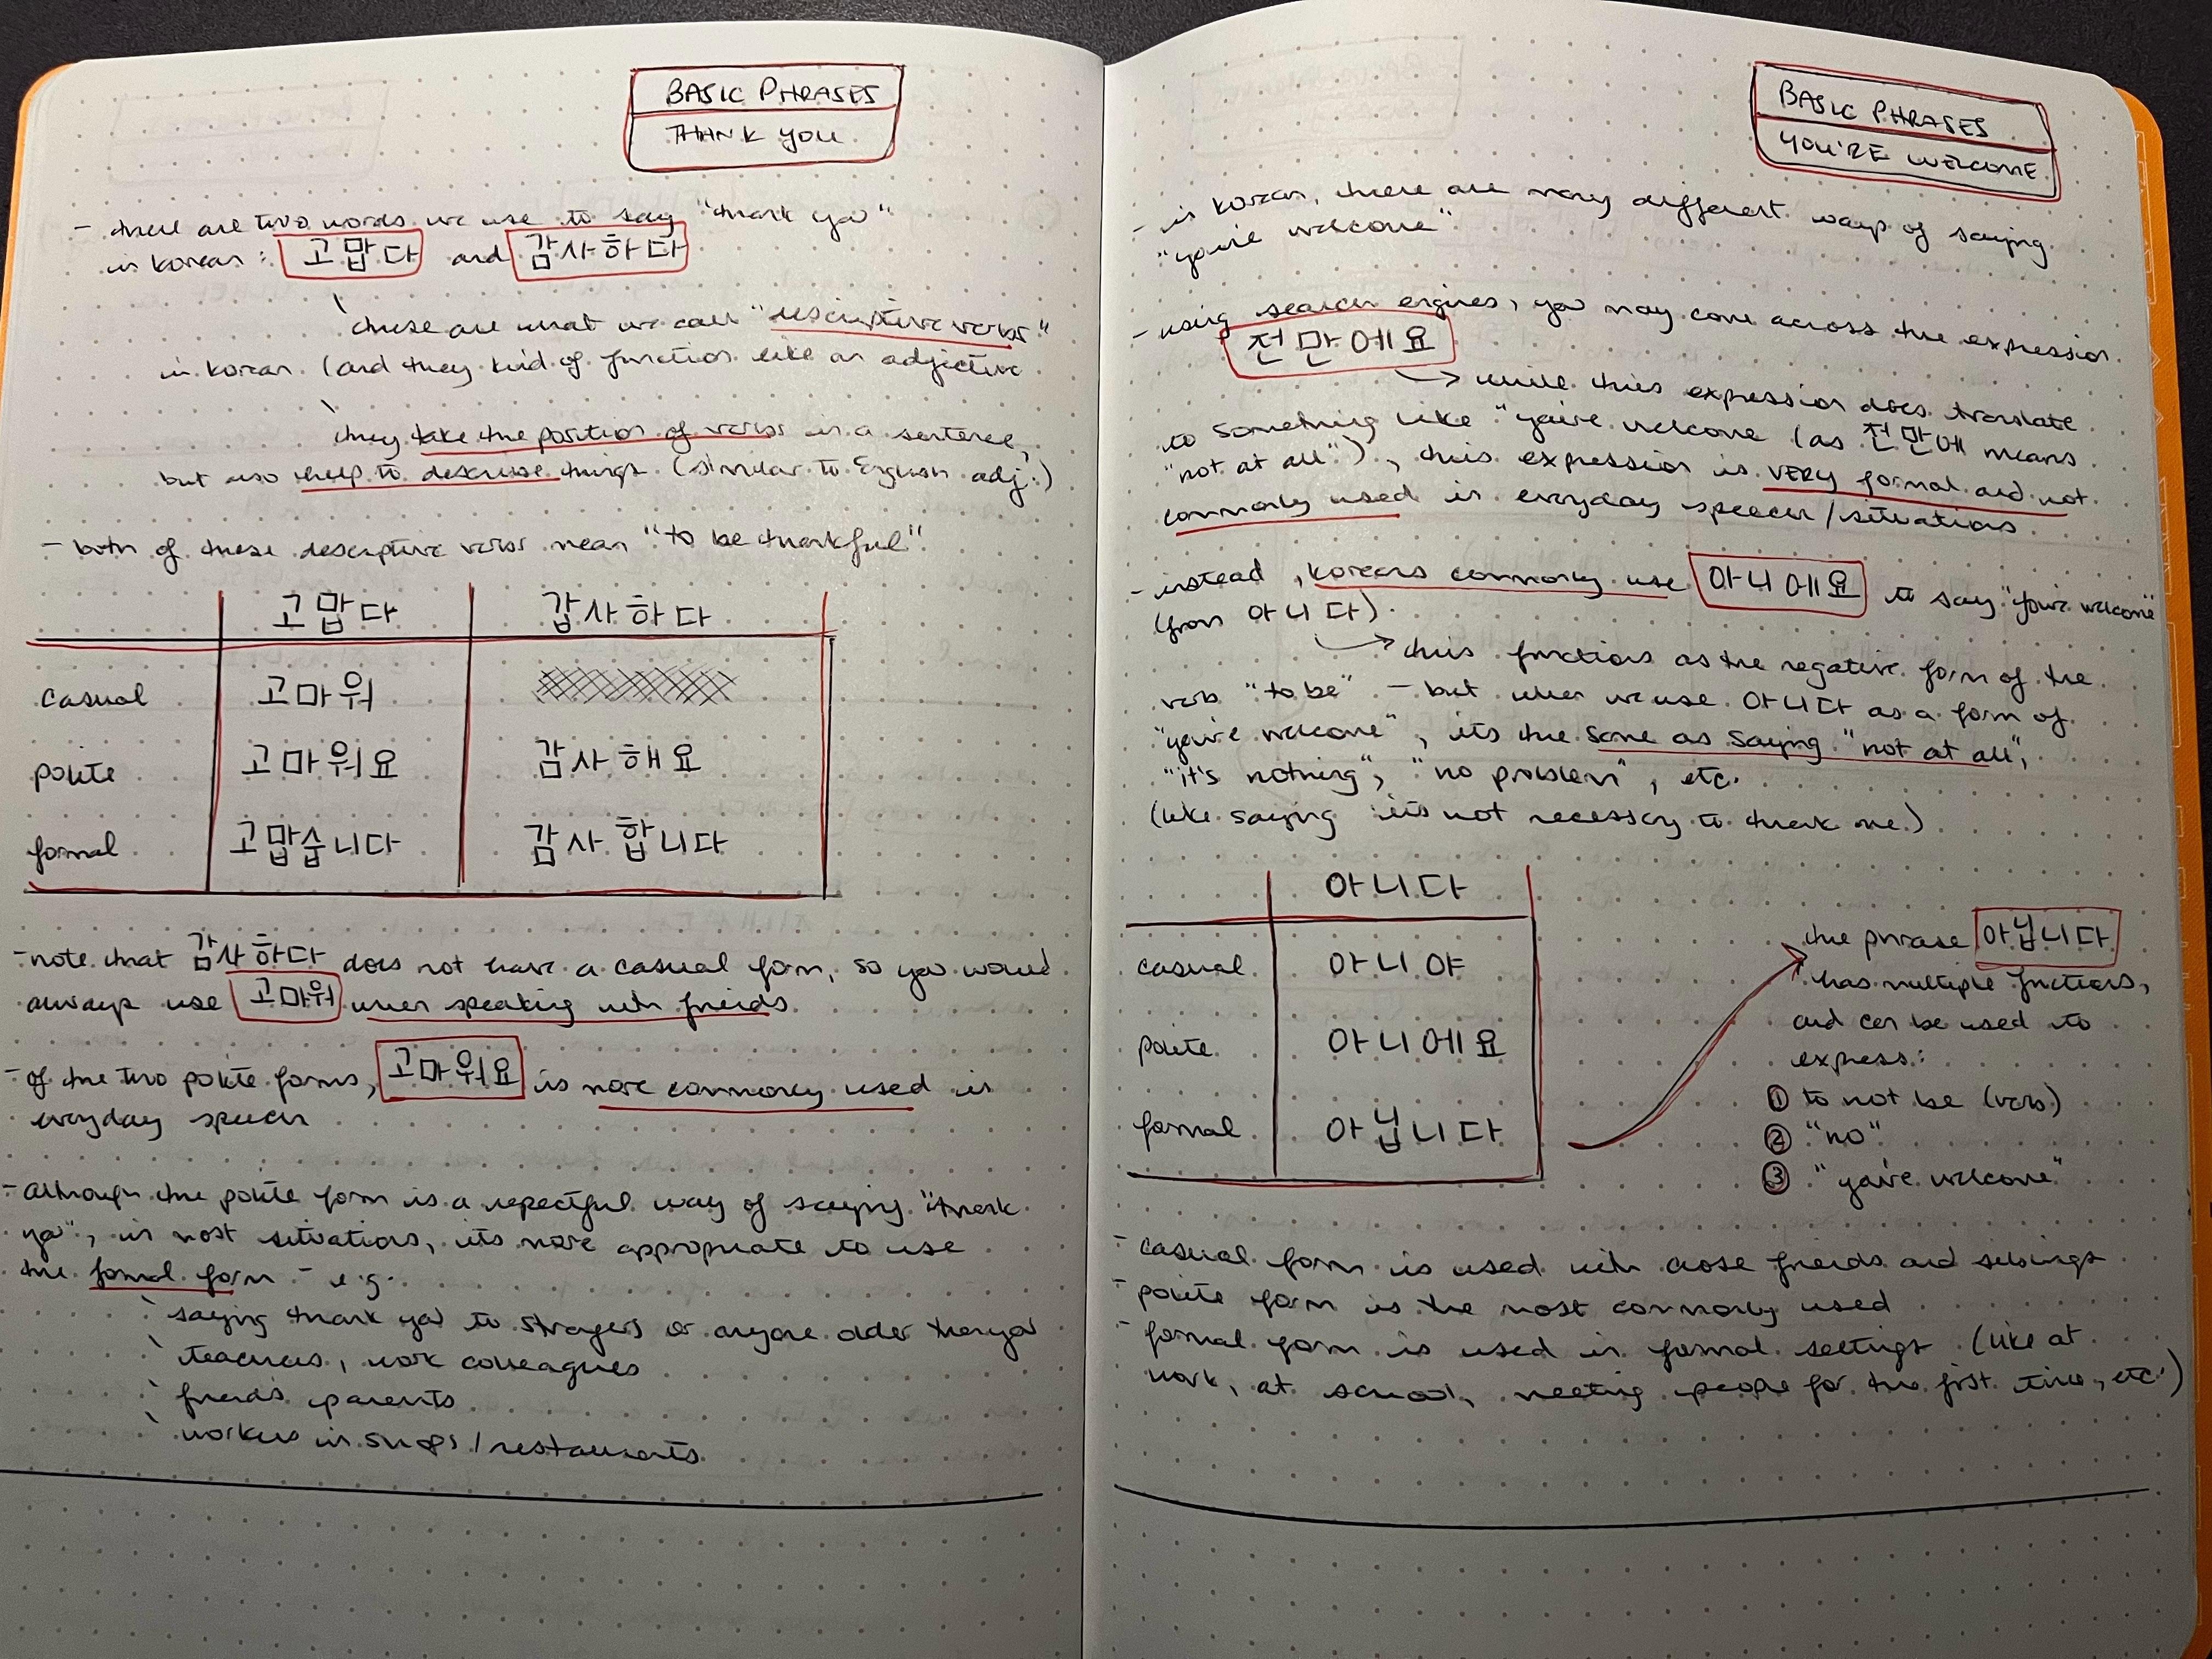 BASIC PHRASES
THANK YOU
- there are two words we use to say "thank you"
in korean: 고맙다 and 감사하다
these are what we call "descriptive verbs"
in korean (and they kind of function like an adjective
they take the position of verbs in a sentence,
but also help to describe things (similar to English adj.)
- both of these descriptive verbs mean "to be thankful"
고맙다 감사하다
casual 고마워
polite 고마워요 감사해요
formal 고맙습니다 감사합니다
- note that 감사하다 does not have a casual form, so you would
always use 고마워 when speaking with friends
- of the two polite forms, 고마워요 is more commonly used in
everyday speech
- although the polite form is a repectful way of saying "thank
you", in most situations, it's more appropriate to use
the formal form - e.g.
saying thank you to strangers or anyone older than you
teachers, work colleagues
friends parents
workers in shops / restaurants
BASIC PHRASES
YOU'RE WELCOME
- in korean, there are many different ways of saying
"you're welcome"
- using search engines, you may come across the expression
천만에요
→ while this expression does translate
to something like "you're welcome (as 천만에 means
"not at all"), this expression is VERY formal and not
commonly used in everyday speech/situations
- instead, koreans commonly use 아니에요 to say "you're welcome"
(from 아니다)
→ this functions as the negative form of the
verb "to be" - but when we use 아니다 as a form of
"you're welcome", it's the same as saying "not at all",
"it's nothing", "no problem", etc.
(like saying it's not necessary to thank me.)
아니다
casual 아니야
polite 아니에요
formal 아닙니다
the phrase 아닙니다
has multiple functions,
and can be used to
express:
① to not be (verb)
② "no"
③ "you're welcome"
- casual form is used with close friends and siblings
- polite form is the most commonly used
- formal form is used in formal settings (like at
work, at school, meeting people for the first time, etc.)